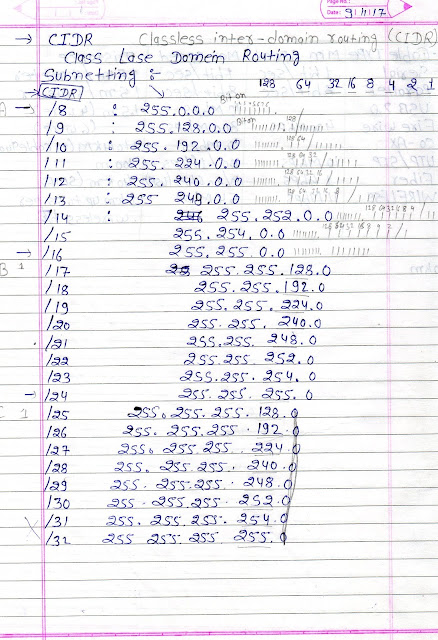 Page No.:
Date: 9/1/17
→ CIDR Classless inter-domain routing (CIDR)
Class Lase Domein Routing
Subnetting :- 128 64 32 16 8 4 2 1
→ (CIDR)
A → /8 : 255.0.0.0 Bit on
/9 : 255.128.0.0 Bit on 128
/10 : 255.192.0.0 128 64
/11 : 255.224.0.0 128 64 32
/12 : 255.240.0.0 128 64 32 16
/13 : 255 248.0.0 128 64 32 16 8
/14 : 255.252.0.0 128 64 32 16 8 4
/15 255.254.0.0 128 64 32 16 8 4 2
→ /16 255.255.0.0
B 1 /17 255.255.128.0
/18 255.255.192.0
/19 255.255.224.0
/20 255.255.240.0
/21 255.255.248.0
/22 255.255.252.0
/23 255.255.254.0
→ /24 255.255.255.0
C 1 /25 255.255.255.128.0
/26 255.255.255.192.0
/27 255.255.255.224.0
/28 255.255.255.240.0
/29 255.255.255.248.0
/30 255.255.255.252.0
/31 255.255.255.254.0
/32 255 255.255.255.0